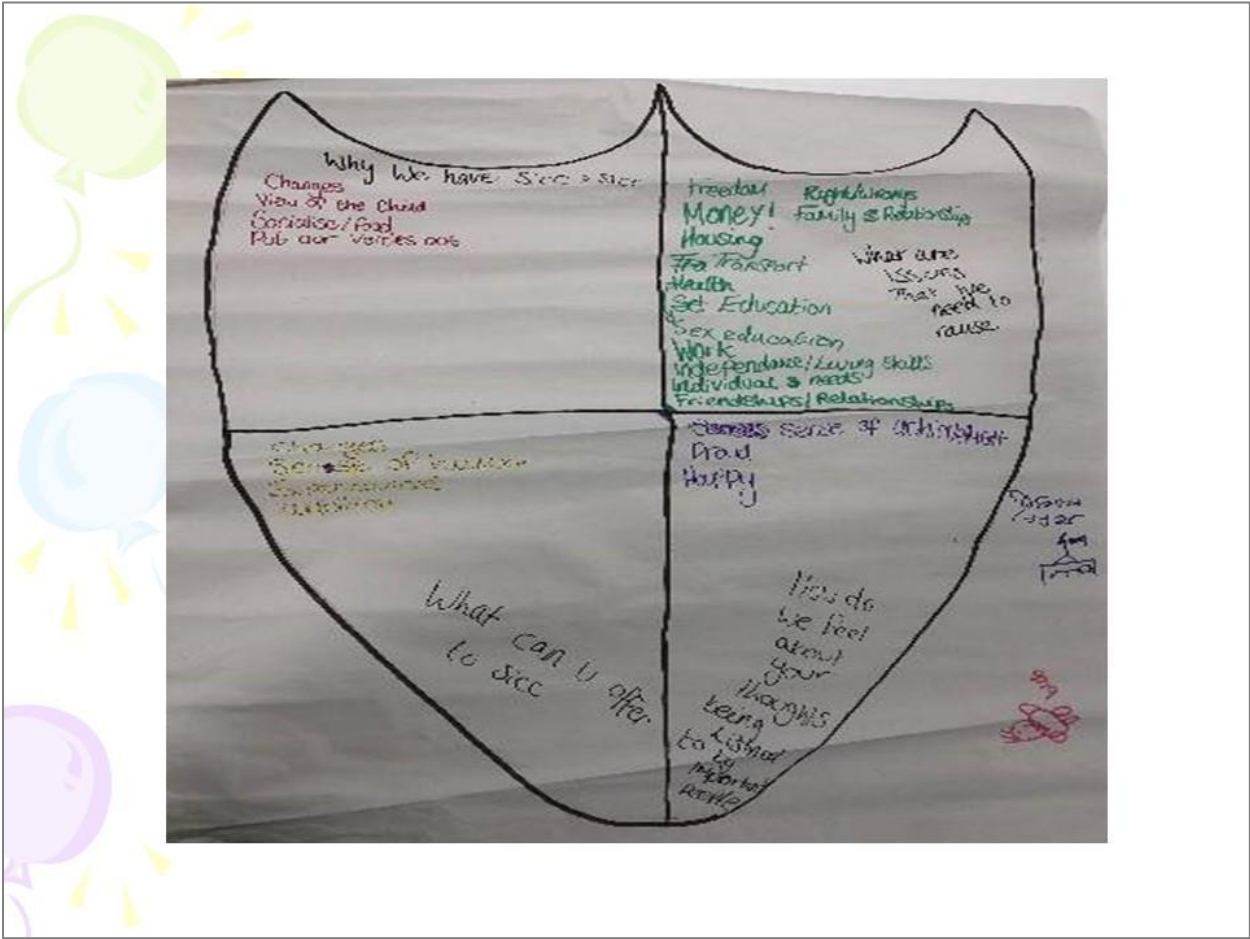 Why We have SICC > SICC
Changes
View of the Child
Socialise/Food
Put our voices out
Freedom
Money!
Housing
Tra Transport
Health
Set Education
Sex education
Work
Independance/Living skills
Individual s needs
Friendships/Relationships
Right/wrongs
Family & Relationship
What are
issues
That we
need to
rause
Changes
Sense of
What can u offer
to SICC
sense of
Proud
Happy
How do
we feel
about
your
thoughts
being
Listned
to by
important
people